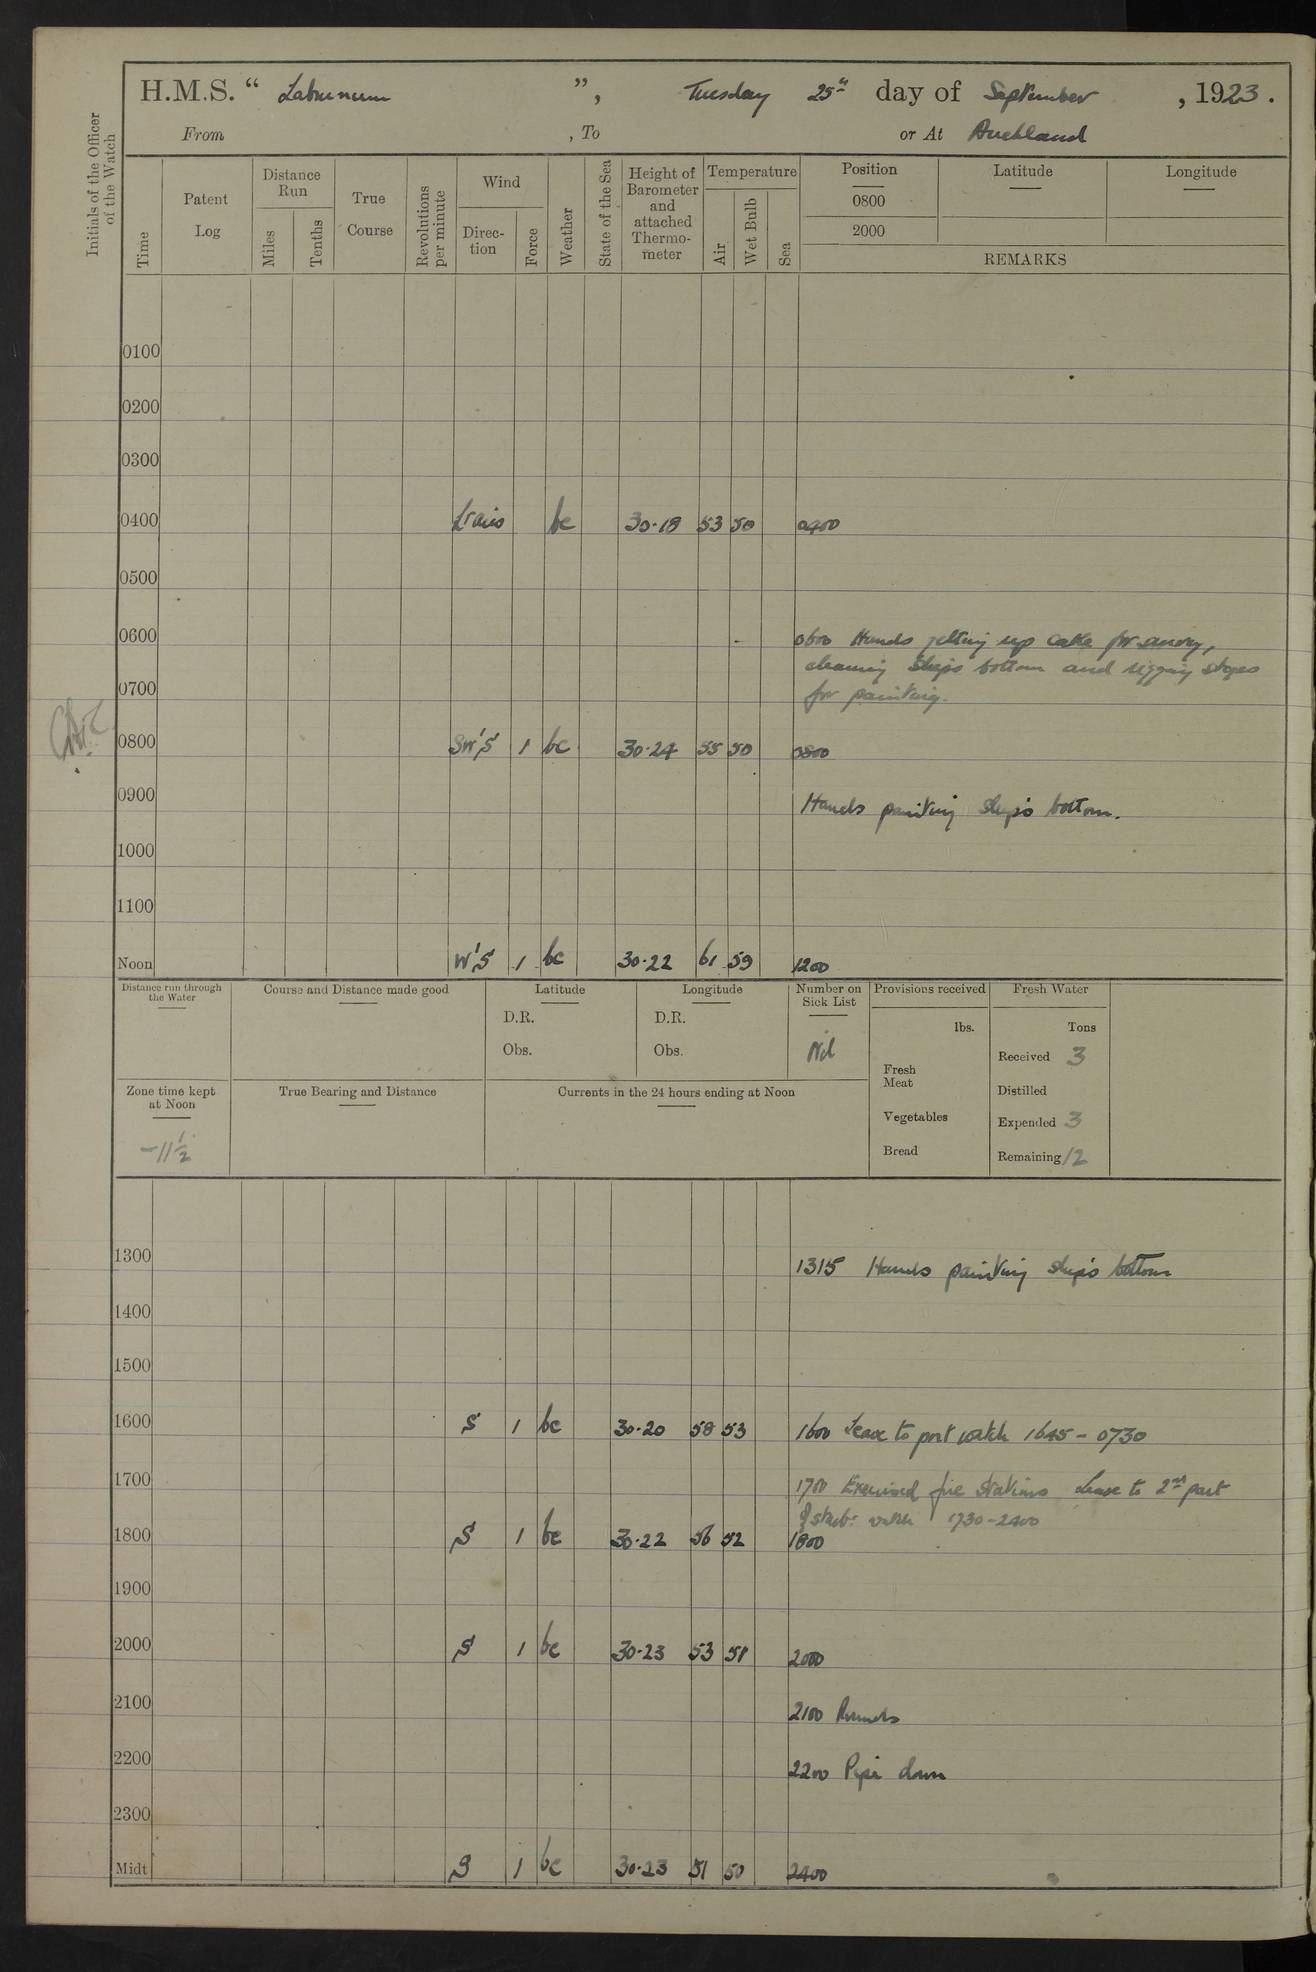 H.M.S. “ Laburnum ”, Tuesday 25th day of September , 1923.
From , To or At Auckland
Initials of the Officer of the Watch
Time
Patent Log
Distance Run
Miles
Tenths
True Course
Revolutions per minute
Wind
Direc-tion
Force
Weather
State of the Sea
Height of Barometer and attached Thermo-meter
Temperature
Air
Wet Bulb
Sea
Position
0800
2000
Latitude
Longitude
REMARKS
0100
0200
0300
0400 bc 30.18 53 50 0400
0500
0600 0600 Hands getting up
cleaning Ships bottom and rigging stages
0700 for painting.
0800 SW'S 1 bc 30.24 55 50 0800
0900 Hands painting ship's bottom.
1000
1100
Noon W'S 1 bc 30.22 61 59 1200
Distance run through the Water
Course and Distance made good
Latitude
D.R.
Obs.
Longitude
D.R.
Obs.
Number on Sick List
Nil
Provisions received
lbs.
Fresh Meat
Vegetables
Bread
Fresh Water
Tons
Received 3
Distilled
Expended 3
Remaining 12
Zone time kept at Noon
-11½
True Bearing and Distance
Currents in the 24 hours ending at Noon
1300 1315 Hands painting ship's bottom
1400
1500
1600 S 1 bc 30.20 58 53 1600 Leave to port watch 1645 - 0730
1700 1700 Exercised fire stations Leave to 2nd part
of stbd: watch 1730-2400
1800 S 1 bc 30.22 56 52 1800
1900
2000 S 1 bc 30.23 53 51 2000
2100 2100 Rounds
2200 2200 Pipe down
2300
Midt S 1 bc 30.23 51 50 2400